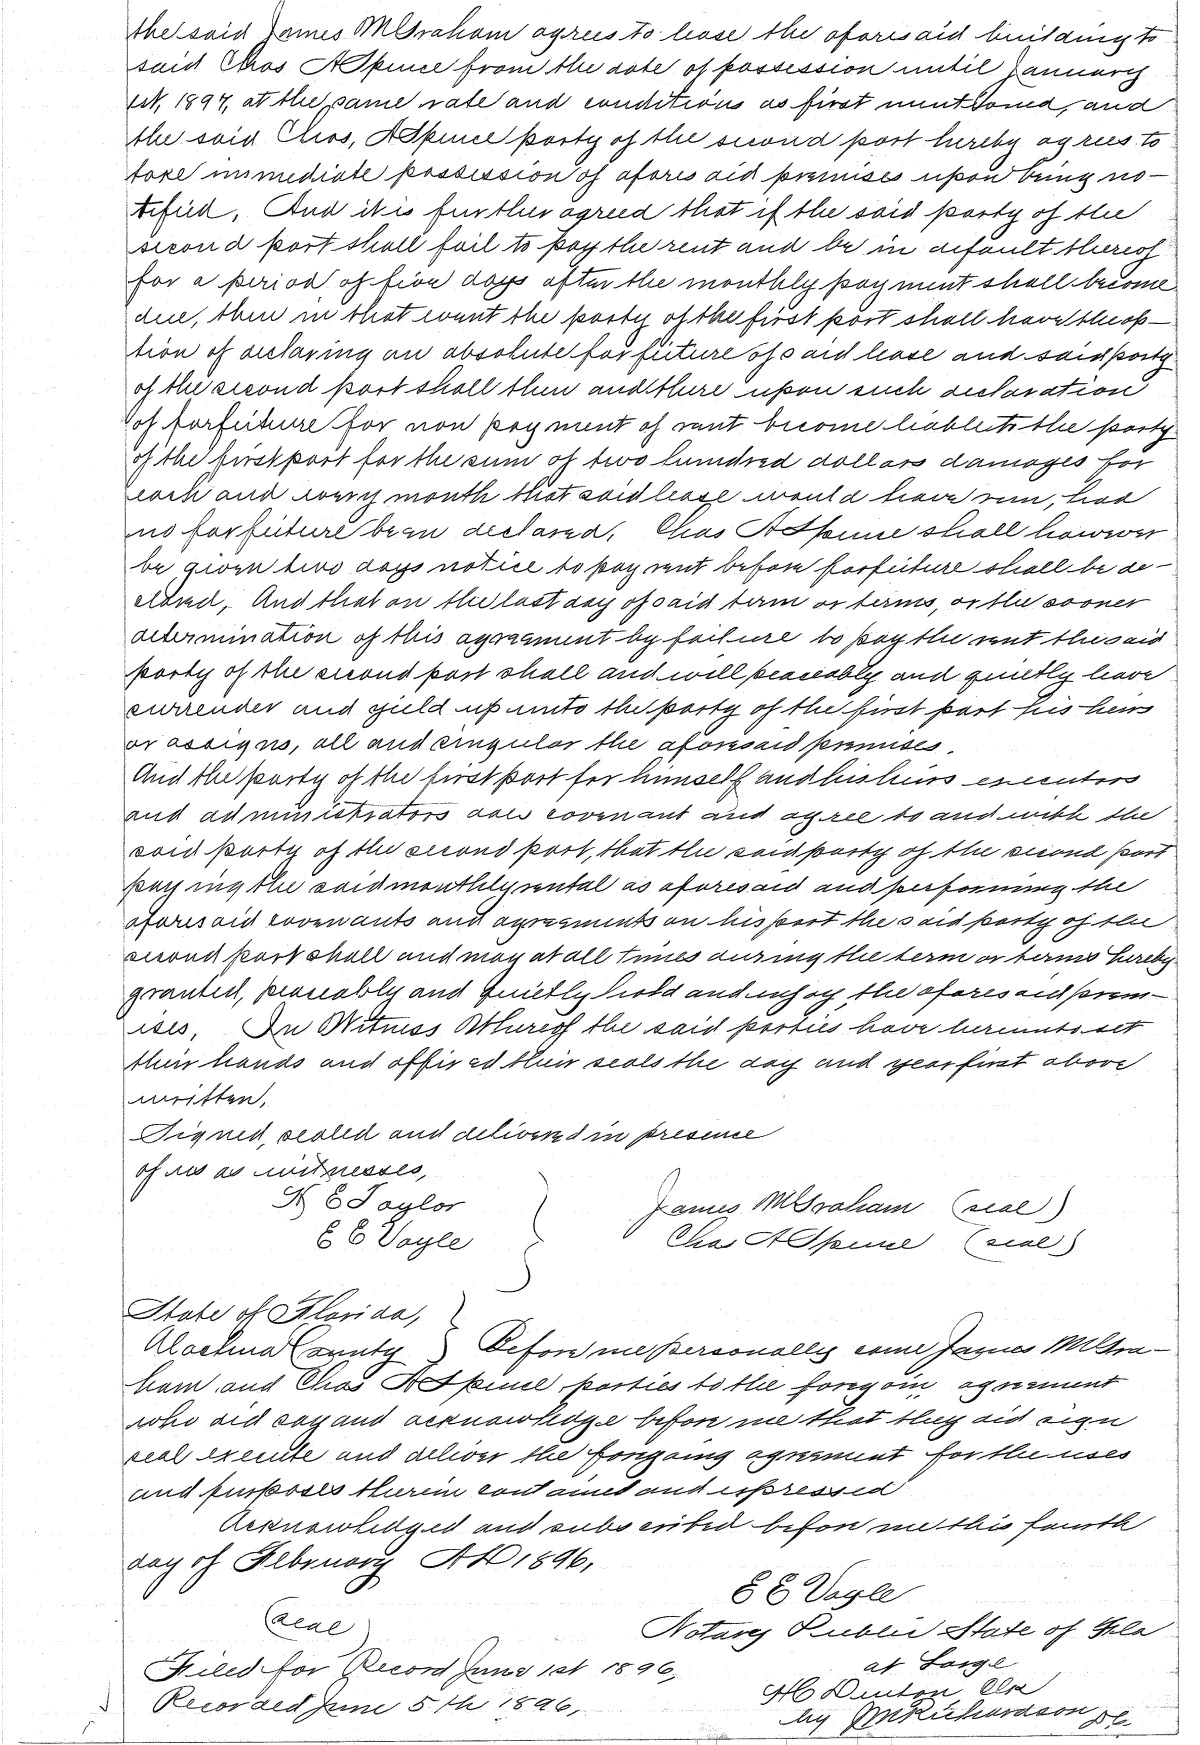 the said James M Graham agrees to lease the aforesaid building to
said Chas A Spence from the date of possession until January
1st, 1897, at the same rate and conditions as first mentioned, and
the said Chas, A Spence party of the second part hereby agrees to
take immediate possession of aforesaid premises upon being no-
tified, And it is further agreed that if the said party of the
second part shall fail to pay the rent and be in default thereof
for a period of five days after the monthly payment shall become
due, then in that event the party of the first part shall have the op-
tion of declaring an absolute forfeiture of said lease and said party
of the second part shall then and there upon such declaration
of forfeiture for non payment of rent become liable to the party
of the first part for the sum of two hundred dollars damages for
each and every month that said lease would have run, had
no forfeiture been declared, Chas A Spence shall however
be given two days notice to pay rent before forfeiture shall be de-
clared, And that on the last day of said term or terms, or the sooner
determination of this agreement by failure to pay the rent the said
party of the second part shall and will peaceably and quietly leave
surrender and yield up unto the party of the first part his heirs
or assigns, all and singular the aforesaid premises.
And the party of the first part for himself and his heirs executors
and administrators does covenant and agree to and with the
said party of the second part, that the said party of the second part
paying the said monthly rental as aforesaid and performing the
aforesaid covenants and agreements on his part the said party of the
second part shall and may at all times during the term or terms hereby
granted, peaceably and quietly hold and enjoy the aforesaid prem-
ises, In Witness Whereof the said parties have hereunto set
their hands and affixed their seals the day and year first above
written,
Signed, sealed and delivered in presence
of us as witnesses,
H E Taylor James M Graham (seal)
E E Voyle Chas A Spence (seal)
State of Florida,
Alachua County Before me personally came James M Gra-
ham and Chas A Spence parties to the foregoin agreement
who did say and acknowledge before me that they did sign
seal execute and deliver the foregoing agreement for the uses
and purposes therein contained and expressed
Acknowledged and subscribed before me this fourth
day of February A D 1896,
E E Voyle
(seal) Notary Public State of Fla
at Large
Filed for Record June 1st 1896,
H C Denton Clk
Recorded June 5th 1896,
by J M Richardson D C